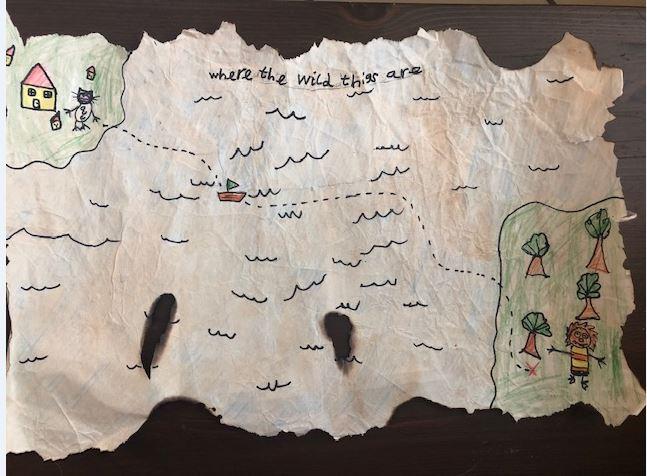 where the wild thigs are